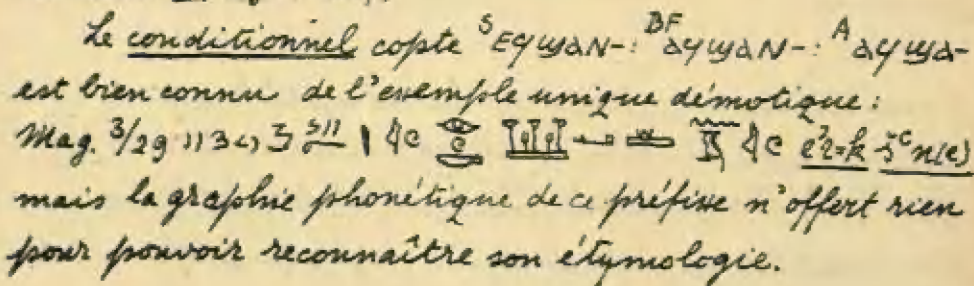 Le conditionnel copte ˢ ⲉϥϣⲁⲛ-: ᴮꟳ ⲁϥϣⲁⲛ-: ᴬ ⲁϥϣⲁ-
est bien connu de l'exemple unique démotique:
Mag. 3/29
mais la graphie phonétique de ce préfixe n'offert rien
pour pouvoir reconnaître son étymologie.